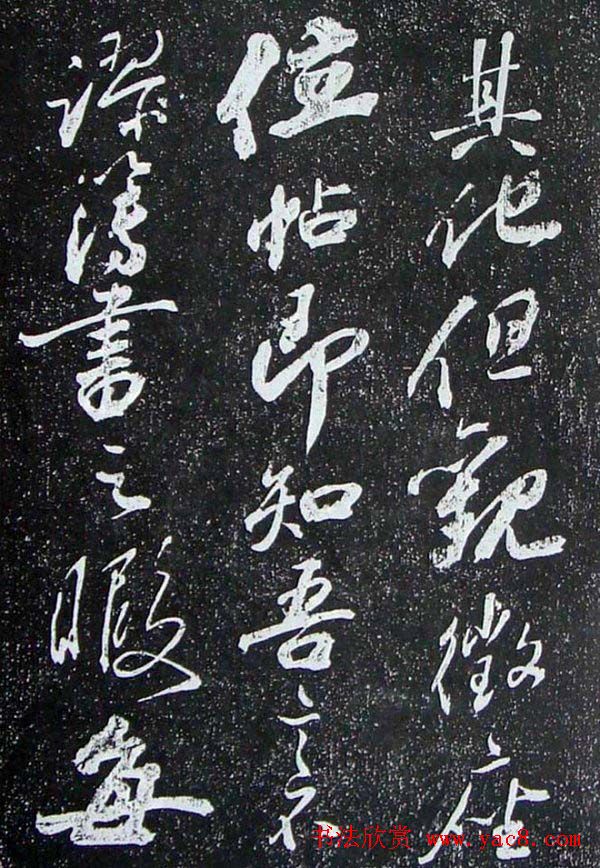 其他但觀徵座
位帖即知吾言不
謬簿書之暇每
书法欣赏 www.yac8.com